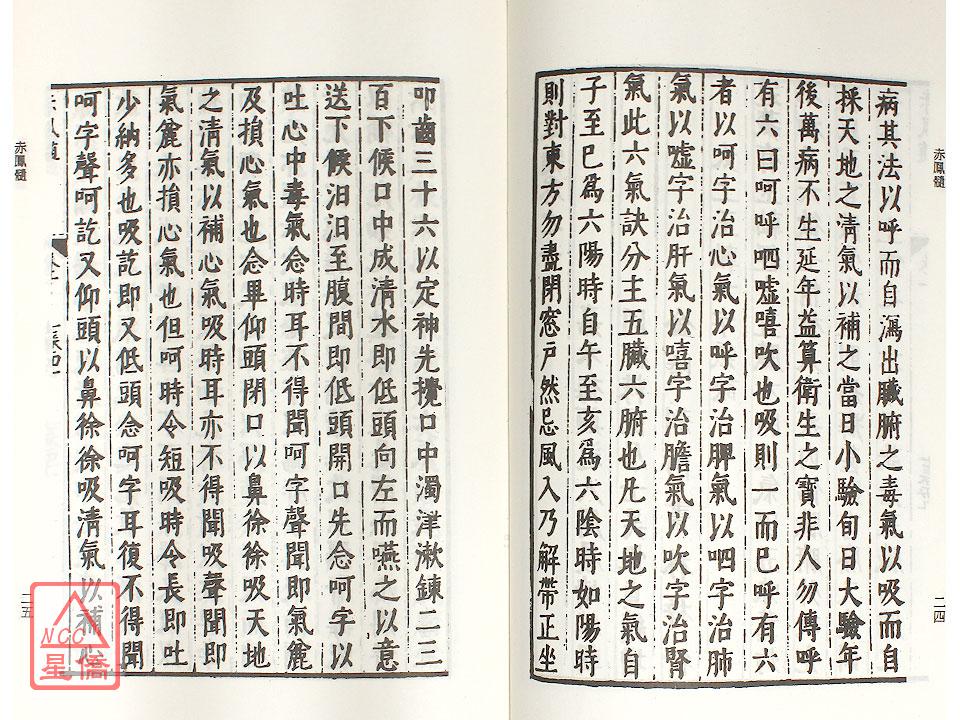 赤鳳髓
病其法以呼而自瀉出臟腑之毒氣以吸而自
採天地之清氣以補之當日小驗旬日大驗年
後萬病不生延年益算衛生之寶非人勿傳呼
有六曰呵呼呬噓嘻吹也吸則一而已呼有六
者以呵字治心氣以呼字治脾氣以呬字治肺
氣以噓字治肝氣以嘻字治膽氣以吹字治腎
氣此六氣訣分主五臟六腑也凡天地之氣自
子至巳爲六陽時自午至亥爲六陰時如陽時
則對東方勿盡閉窓户然忌風入乃解帶正坐
二四
叩齒三十六以定神先攪口中濁津漱鍊二三
百下候口中成清水即低頭向左而嚥之以意
送下候汨汨至腹間即低頭開口先念呵字以
吐心中毒氣念時耳不得聞呵字聲聞即氣麄
及損心氣也念畢仰頭閉口以鼻徐徐吸天地
之清氣以補心氣吸時耳亦不得聞吸聲聞即
氣麄亦損心氣也但呵時令短吸時令長即吐
少納多也吸訖即又低頭念呵字耳復不得聞
呵字聲呵訖又仰頭以鼻徐徐吸清氣以補心
赤鳳髓
二五
NCC
星僑